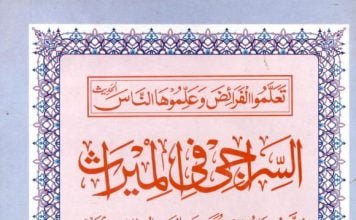 تَعَلَّمُوا الْفَرَائِضَ وَعَلِّمُوهَا النَّاسَ الحديث
السِّرَاجِي فِي الْمِيرَاثِ